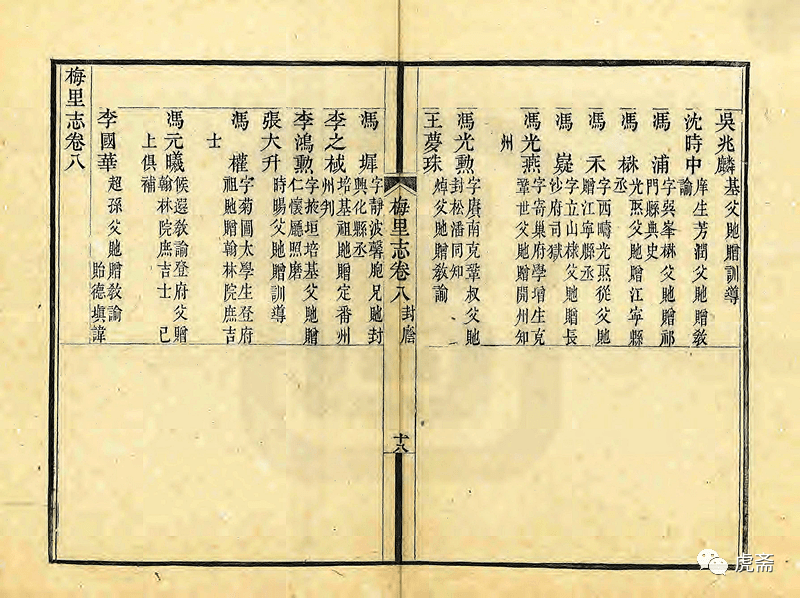 吳兆麟 基父貤贈訓導
沈時中 庠生芳潤父貤贈教諭
馮浦 字吳峯楙父貤贈祁門縣典史
馮楙 光熙父貤贈江寧縣丞
馮禾 字西疇光熙從父貤贈江寧縣丞
馮嶷 字立山棣父貤贈長沙府司獄
馮光燕 字寄巢府學增生克鞏世父貤贈開州知州
馮光勲 字賡南克鞏叔父貤封松潘同知
王夢珠 焯父貤贈教諭
梅里志卷八 封廕 十八
馮墀 字靜波馨胞兄貤封興化縣丞
李之棫 培基祖貤贈定番州州判
李鴻勲 字掖垣培基父貤贈仁懷廳照磨
張大升 時暘父貤贈訓導
馮權 字菊圃太學生登府祖貤贈翰林院庶吉士
馮元曦 候選教諭登府父贈翰林院庶吉士 已上俱補
李國華 超孫父貤贈教諭 貽德塤諱
梅里志卷八
虎斋